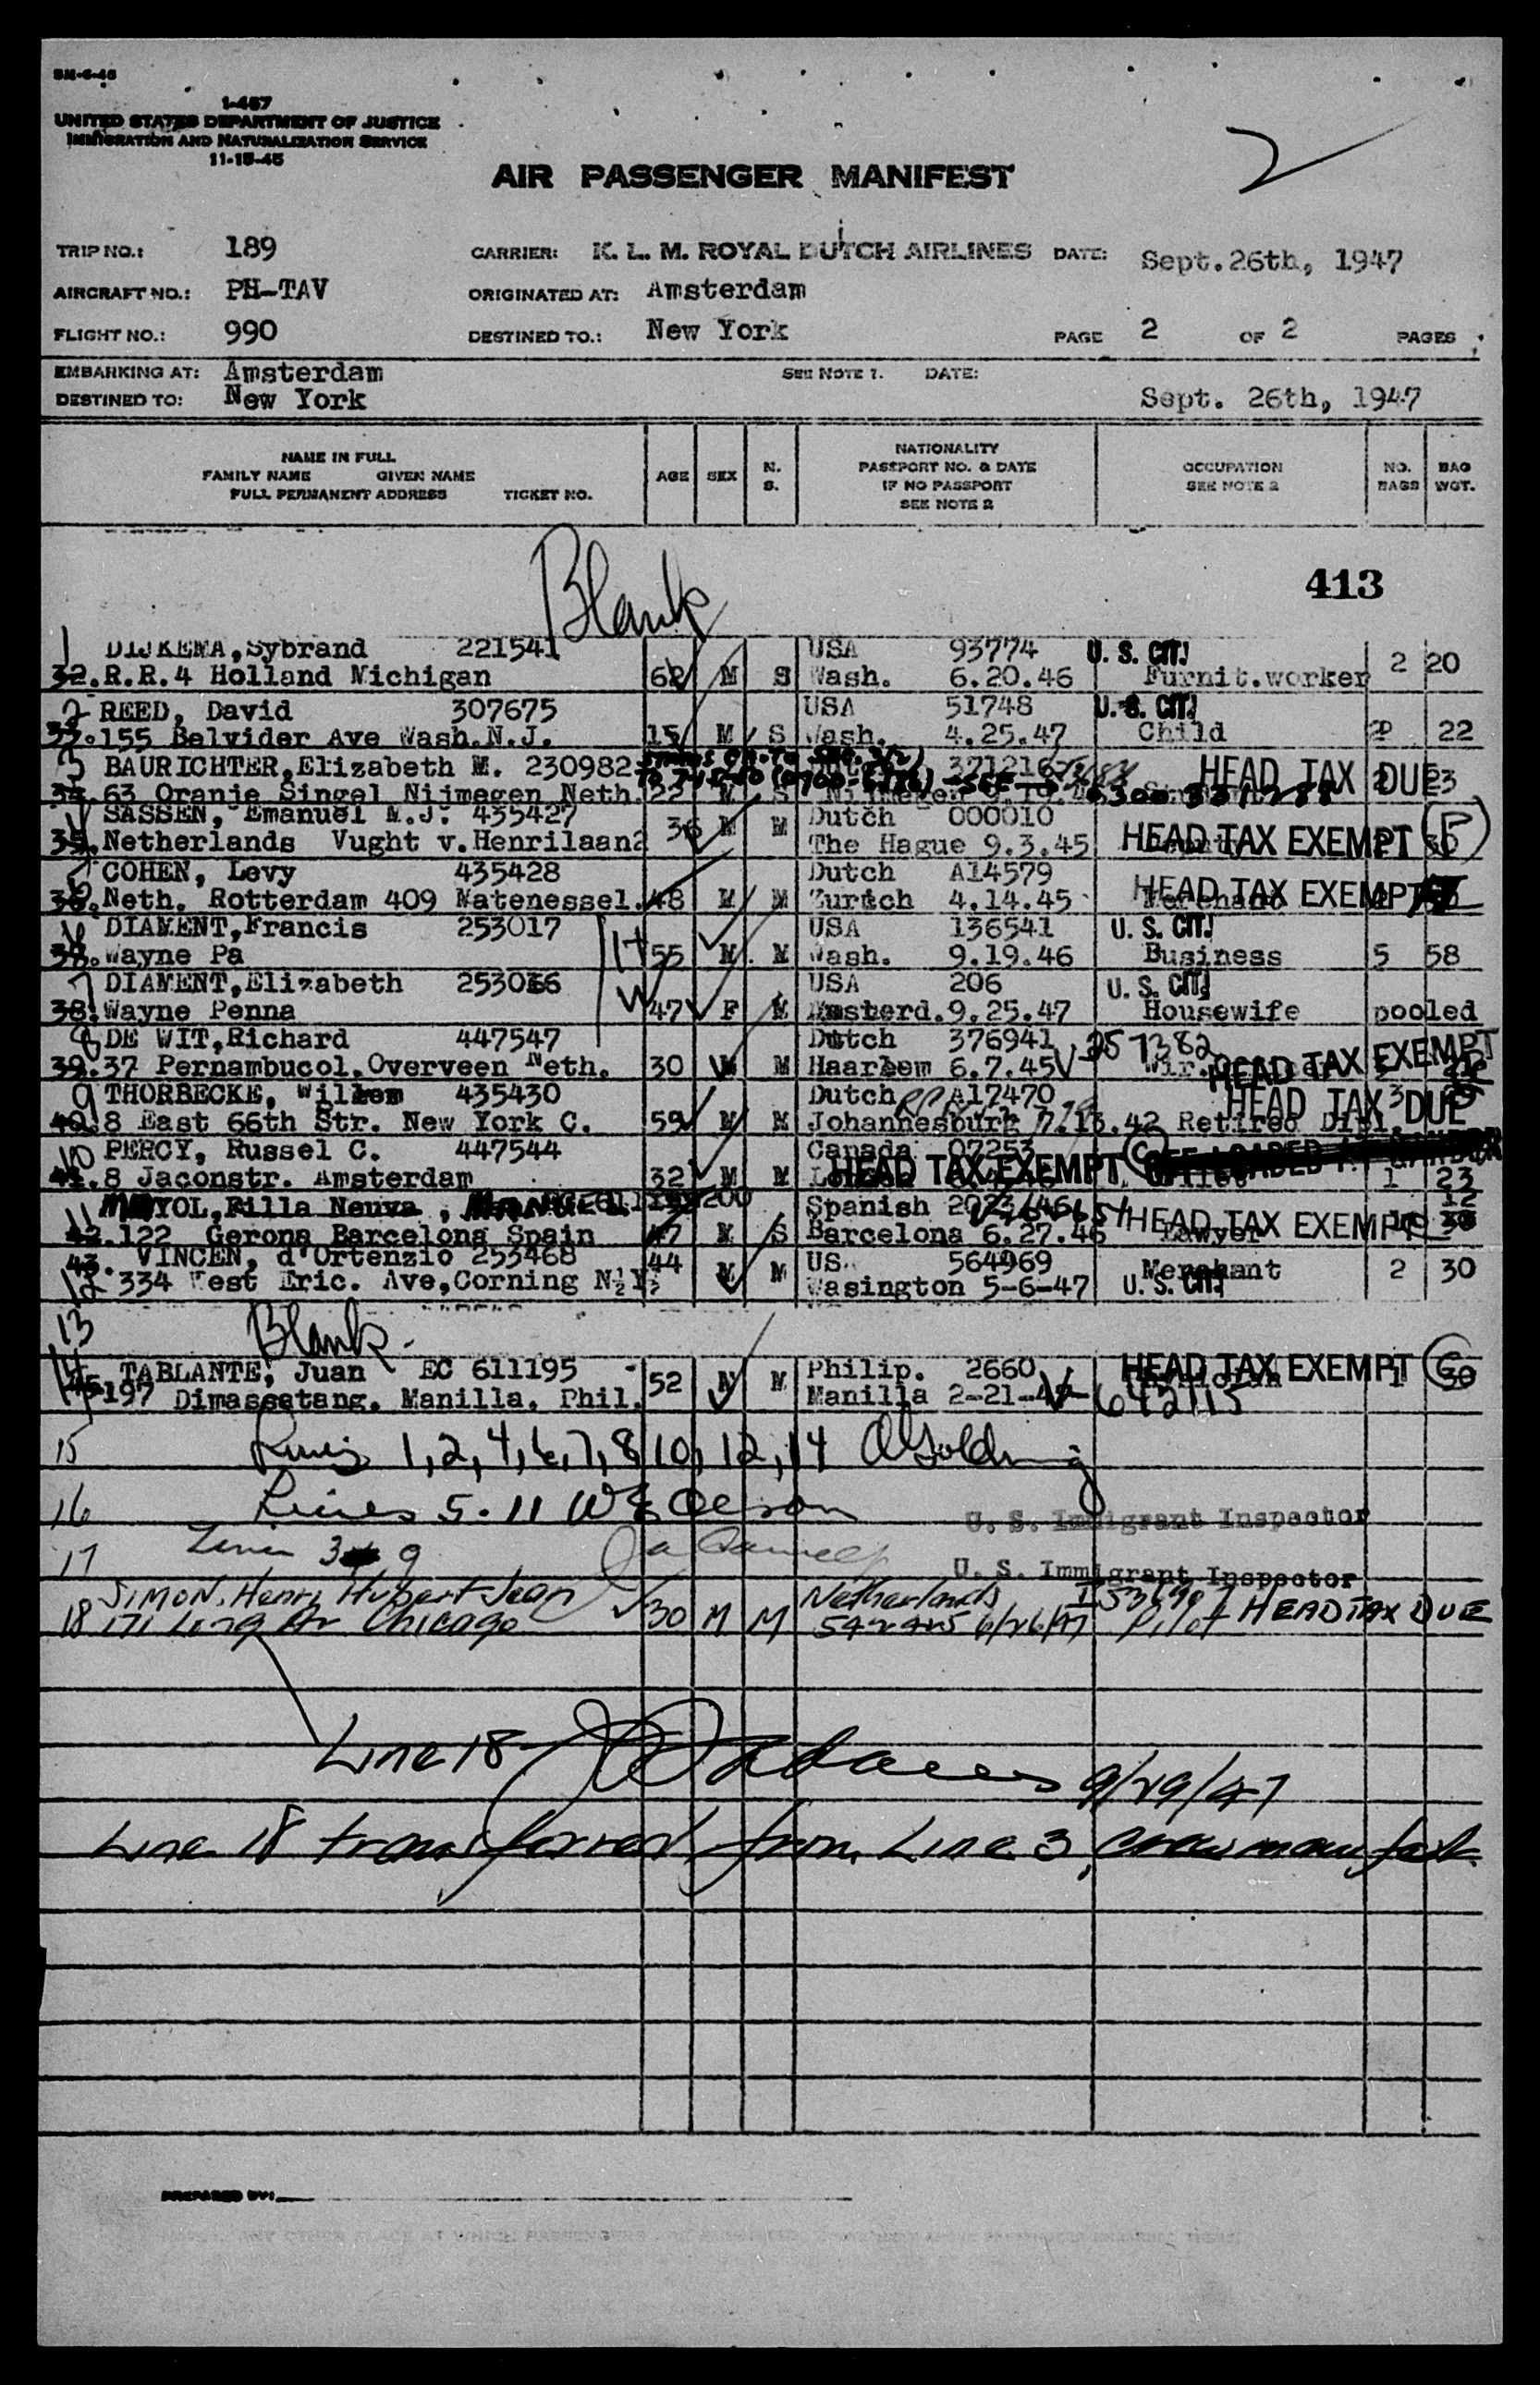 1-467
UNITED STATES DEPARTMENT OF JUSTICE
IMMIGRATION AND NATURALIZATION SERVICE
11-15-45
AIR PASSENGER MANIFEST
2
TRIP NO.: 189 CARRIER: K. L. M. ROYAL DUTCH AIRLINES DATE: Sept.26th, 1947
AIRCRAFT NO.: PH-TAV ORIGINATED AT: Amsterdam
FLIGHT NO.: 990 DESTINED TO.: New York PAGE 2 OF 2 PAGES
EMBARKING AT: Amsterdam SEE NOTE 1. DATE:
DESTINED TO: New York Sept. 26th, 1947
NAME IN FULL
FAMILY NAME GIVEN NAME
FULL PERMANENT ADDRESS TICKET NO.
AGE SEX N. S.
NATIONALITY
PASSPORT NO. & DATE
IF NO PASSPORT
SEE NOTE 2
OCCUPATION
SEE NOTE 2
NO. BAGS
BAG WGT.
Blank
413
1 DIJKEMA, Sybrand 221541 USA 93774 U. S. CIT.
32. R.R.4 Holland Michigan 62 M S Wash. 6.20.46 Furnit.worker 2 20
2 REED, David 307675 USA 51748 U. S. CIT.
33. 155 Belvider Ave Wash.N.J. 15 M S Wash. 4.25.47 Child 22
3 BAURICHTER, Elizabeth M. 230982 371216 HEAD TAX DUE
34. 63 Oranje Singel Nijmegen Neth. 22 S 23
SASSEN, Emanuel M.J. 435427 Dutch 000010
35. Netherlands Vught v.Henrilaan2 36 M M The Hague 9.3.45 HEAD TAX EXEMPT (P)
COHEN, Levy 435428 Dutch A14579
36. Neth. Rotterdam 409 Matenessel. 48 M M Zurich 4.14.45 HEAD TAX EXEMPT
DIAMENT, Francis 253017 USA 136541 U. S. CIT.
Wayne Pa 55 M M Wash. 9.19.46 Business 5 58
7 DIAMENT, Elizabeth USA 206 U. S. CIT.
38. Wayne Penna 47 F M Amsterd. 9.25.47 Housewife pooled
8 DE WIT, Richard 447547 Dutch 376941 257382
39. 37 Pernambucol. Overveen Neth. 30 M M Haarlem 6.7.45 HEAD TAX EXEMPT
9 THORBECKE, Willem 435430 Dutch A17470 HEAD TAX DUE
40. 8 East 66th Str. New York C. 59 M M Johannesburg 7.13.42 Retired Dipl. 3
10 PERCY, Russel C. 447544 Canada 07253
41. 8 Jaconstr. Amsterdam 32 M M HEAD TAX EXEMPT (C) 1 23
11 MAYOL, Filla Neuva, Spanish 12
42. 122 Gerona Barcelona Spain 47 M S Barcelona 6.27.46 Lawyer HEAD TAX EXEMPT
43. VINCEN, d'Ortenzio 253468 US. 564969 Merchant
12 334 West Eric. Ave, Corning N.Y. 44 M M Wasington 5-6-47 U. S. CIT. 2 30
13 Blank
14 TABLANTE, Juan EC 611195 Philip. 2660 HEAD TAX EXEMPT (C)
45. 197 Dimassatang. Manilla. Phil. 52 M M Manilla 642115 1 30
15 1, 2, 4, 6, 7, 8, 10, 12, 14
16 Lines 5-11
U. S. Immigrant Inspector
17 9
U. S. Immigrant Inspector
SIMON, Henri Hubert Jean Netherlands
18 171 Chicago 30 M M 6/26/47 Pilot HEAD TAX DUE
Line 18 9/29/47
Line 18 transferred from Line 3, crew manifest
PREPARED BY: